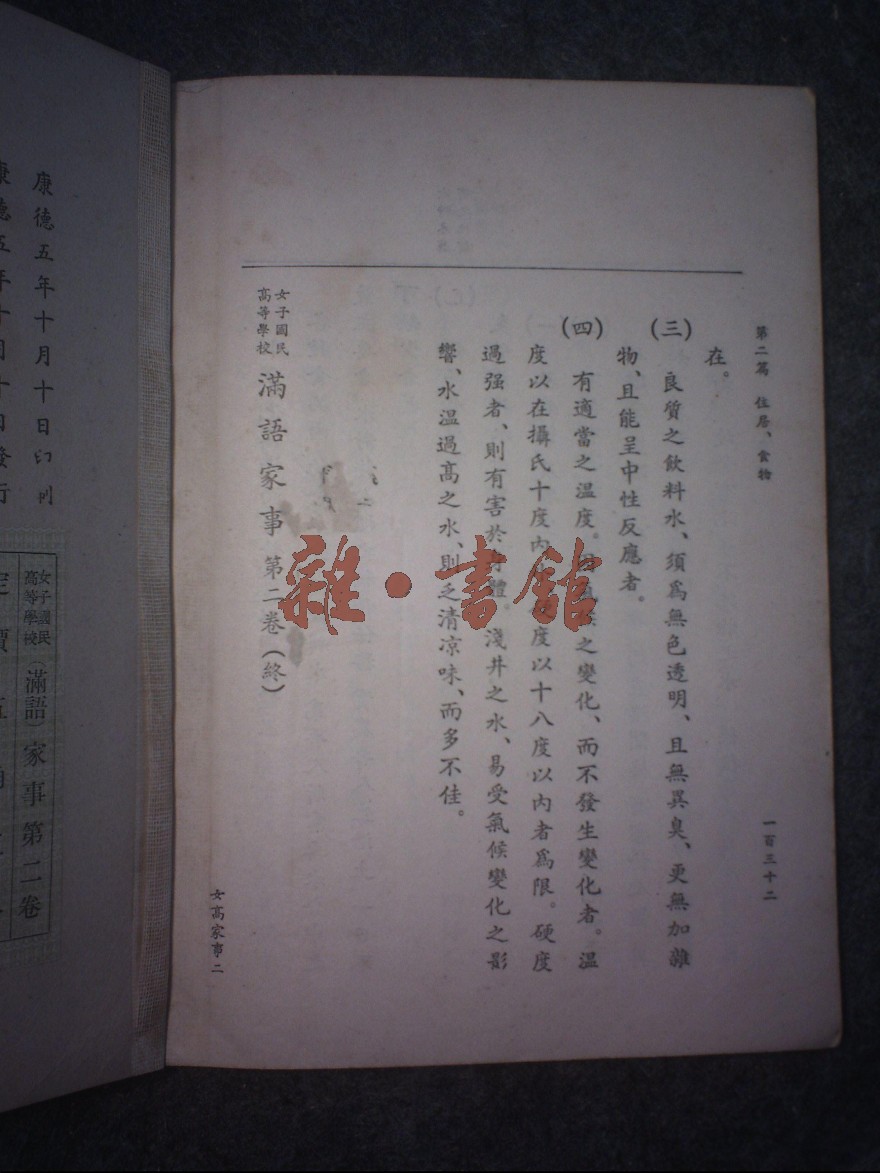 第二篇 住居、食物
一百三十二
在。
(三) 良質之飲料水、須爲無色透明、且無異臭、更無加雜
物、且能呈中性反應者。
(四) 有適當之溫度。之變化、而不發生變化者。溫
度以在攝氏十度內度以十八度以內者爲限。硬度
過强者、則有害於體。淺井之水、易受氣候變化之影
響、水溫過高之水、則乏清凉味、而多不佳。
女子國民
高等學校 滿語家事 第二卷 (終)
女高家事二
雜·書館
康德五年十月十日印刷
康德五年十月十日發行
女子國民
高等學校 (滿語) 家事第二卷
定價五